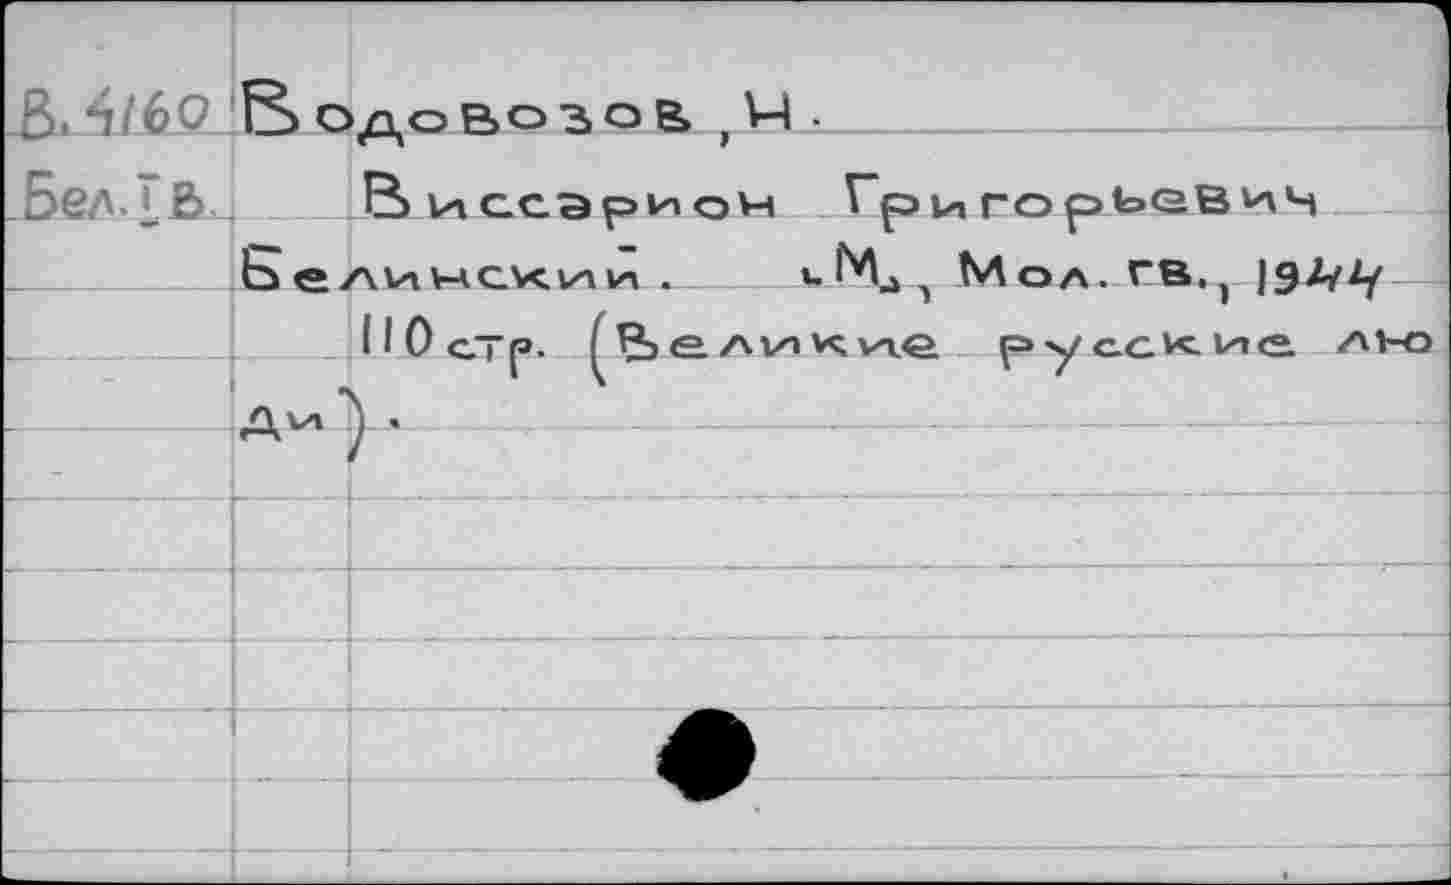 В.4/60 Водовозов, Н.
Бел. I В. Виссарион Григорьевич
Белинский. М., Мол. гв., 1944
110 стр. (Великие русские лю
ди).